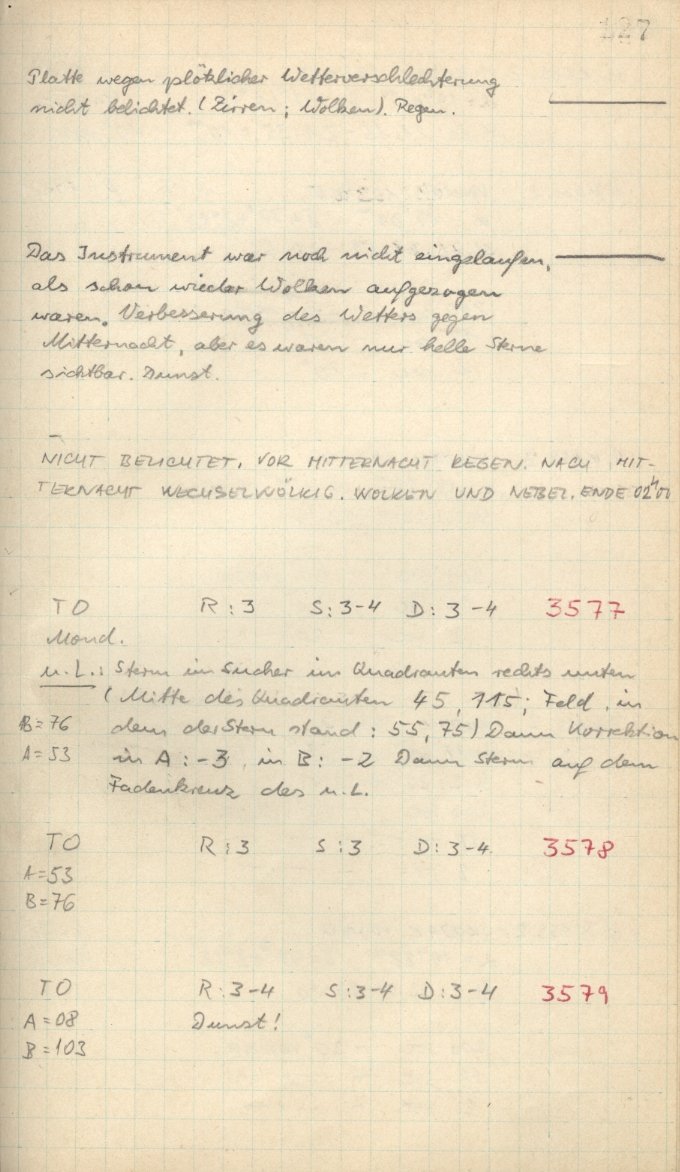 127
Platte wegen plötzlicher Wetterverschlechterung
nicht belichtet. (Zirren; Wolken). Regen.
Das Instrument war noch nicht eingelaufen,
als schon wieder Wolken aufgezogen
waren. Verbesserung des Wetters gegen
Mitternacht, aber es waren nur helle Sterne
sichtbar. Dunst.
NICHT BELICHTET. VOR MITTERNACHT REGEN. NACH MIT-
TERNACHT WECHSELWÖLKIG. WOLKEN UND NEBEL. ENDE 02ʰ00
TO R:3 S:3-4 D:3-4 3577
Mond.
u.L.: Stern im Sucher im Quadranten rechts unten
(Mitte des Quadranten 45, 115; Feld, in
B=76 dem der Stern stand: 55, 75) Dann Korrektion
A=53 in A: -3, in B: -2 Dann Stern auf dem
Fadenkreuz des u.L.
TO R:3 S:3 D:3-4 3578
A=53
B=76
TO R:3-4 S:3-4 D:3-4 3579
A=08 Dunst!
B=103